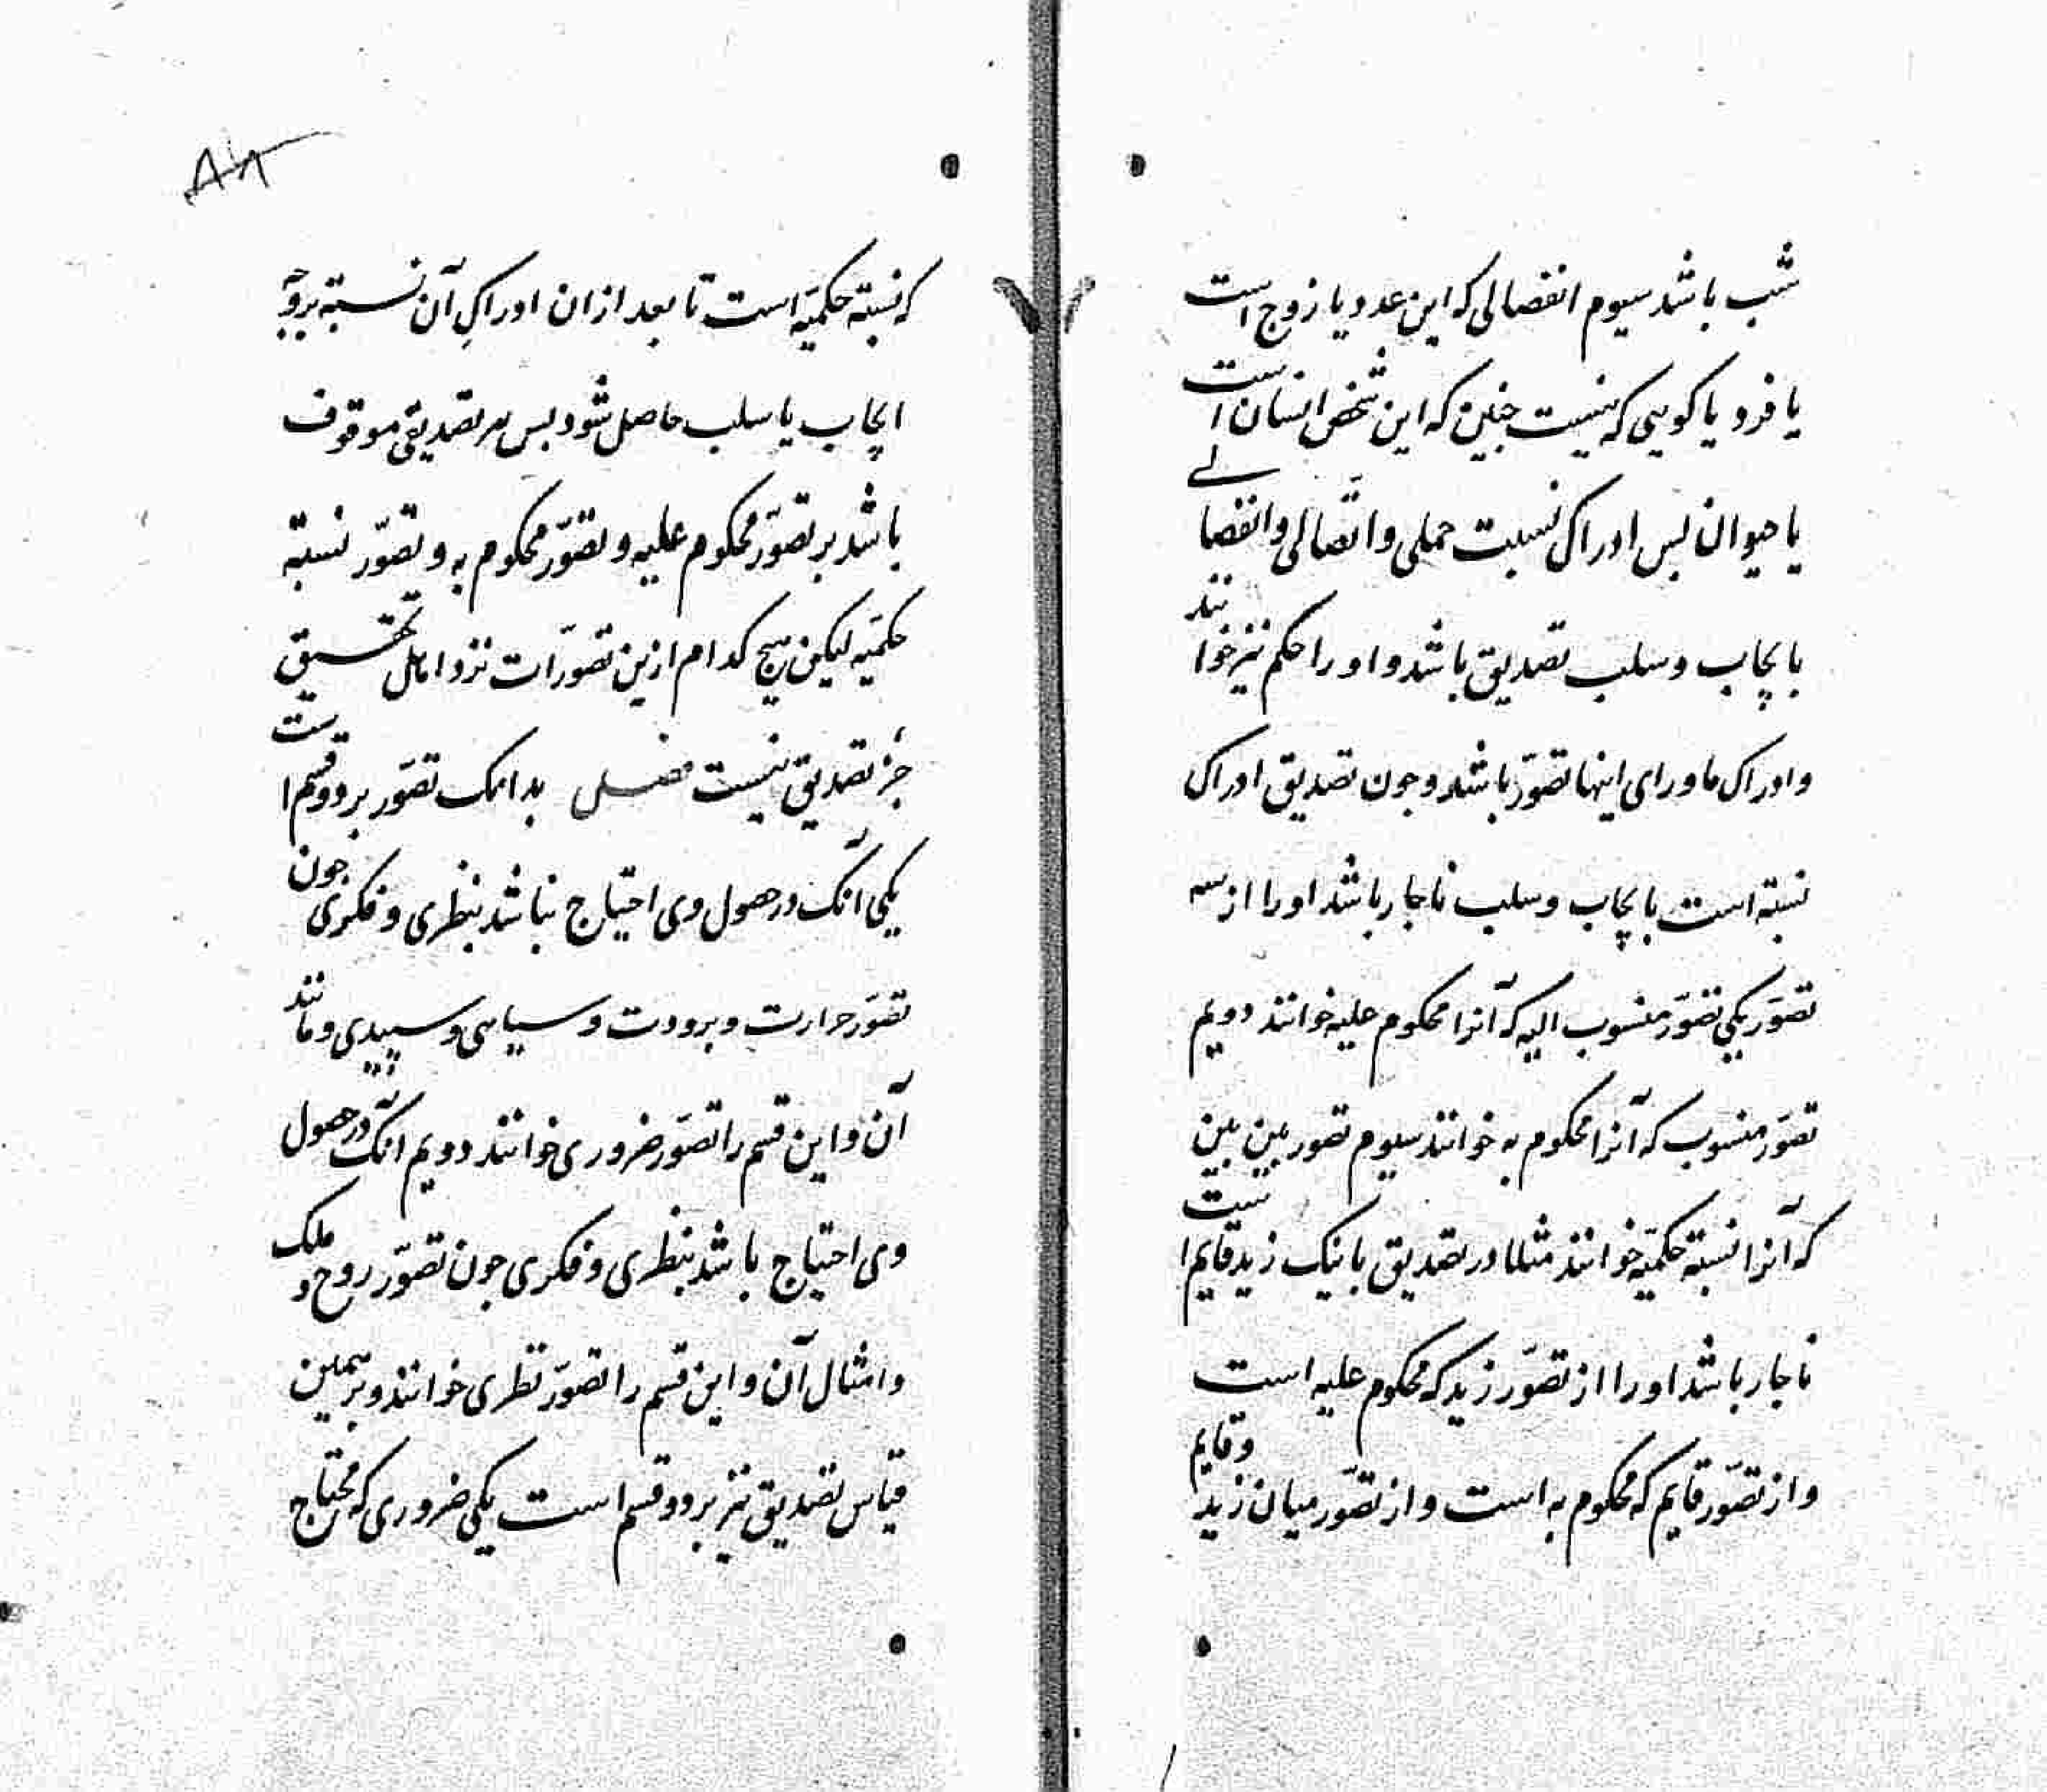 شب باشد سیوم انفصالی که این عدد یا زوج است
یا فرد یا کویی که نیست جنین که این شخص انسان است
یا حیوان بس ادراک نسبت حملی و اتّصالی و انفصالی
بایجاب و سلب تصدیق باشد و او را حکم نیز خوانند
و ادراک ماورای اینها تصوّر باشد و جون تصدیق ادراک
نسبته است بایجاب و سلب ناجار باشد او را از سه
تصوّر یکی تصوّر منسوب الیه که آنرا محکوم علیه خوانند دویم
تصوّر منسوب که آنرا محکوم به خوانند سیوم تصور بین بین
که آنرا نسبته حکمیّه خوانند مثلا در تصدیق بانیک زید قایم است
ناجار باشد او را از تصوّر زید که محکوم علیه است
و از تصوّر قایم که محکوم به است و از تصوّر میان زید و قایم
۸۶
که نسبته حکمیّه است تا بعد از ان ادراکِ آن نسبته بروجه
ایجاب یا سلب حاصل شود بس هر تصدیقی موقوف
باشد بر تصوّر محکوم علیه و تصوّر محکوم به و تصوّر نسبته
حکمیّه لیکن هیج کدام ازین تصوّرات نزد اهل تحقیق
جزء تصدیق نیست فصل بدانک تصوّر بر دو قسم است
یکی آنک در حصول وی احتیاج نباشد بنظری و فکری جون
تصوّر حرارت و برودت و سیاهی و سپیدی و مانند
آن و این قسم را تصوّر ضروری خوانند دویم آنک در حصول
وی احتیاج باشد بنظری و فکری جون تصوّر روح و ملک
و امثال آن و این قسم را تصوّر نظری خوانند و برهمین
قیاس تصدیق نیز بر دو قسم است یکی ضروری که محتاج